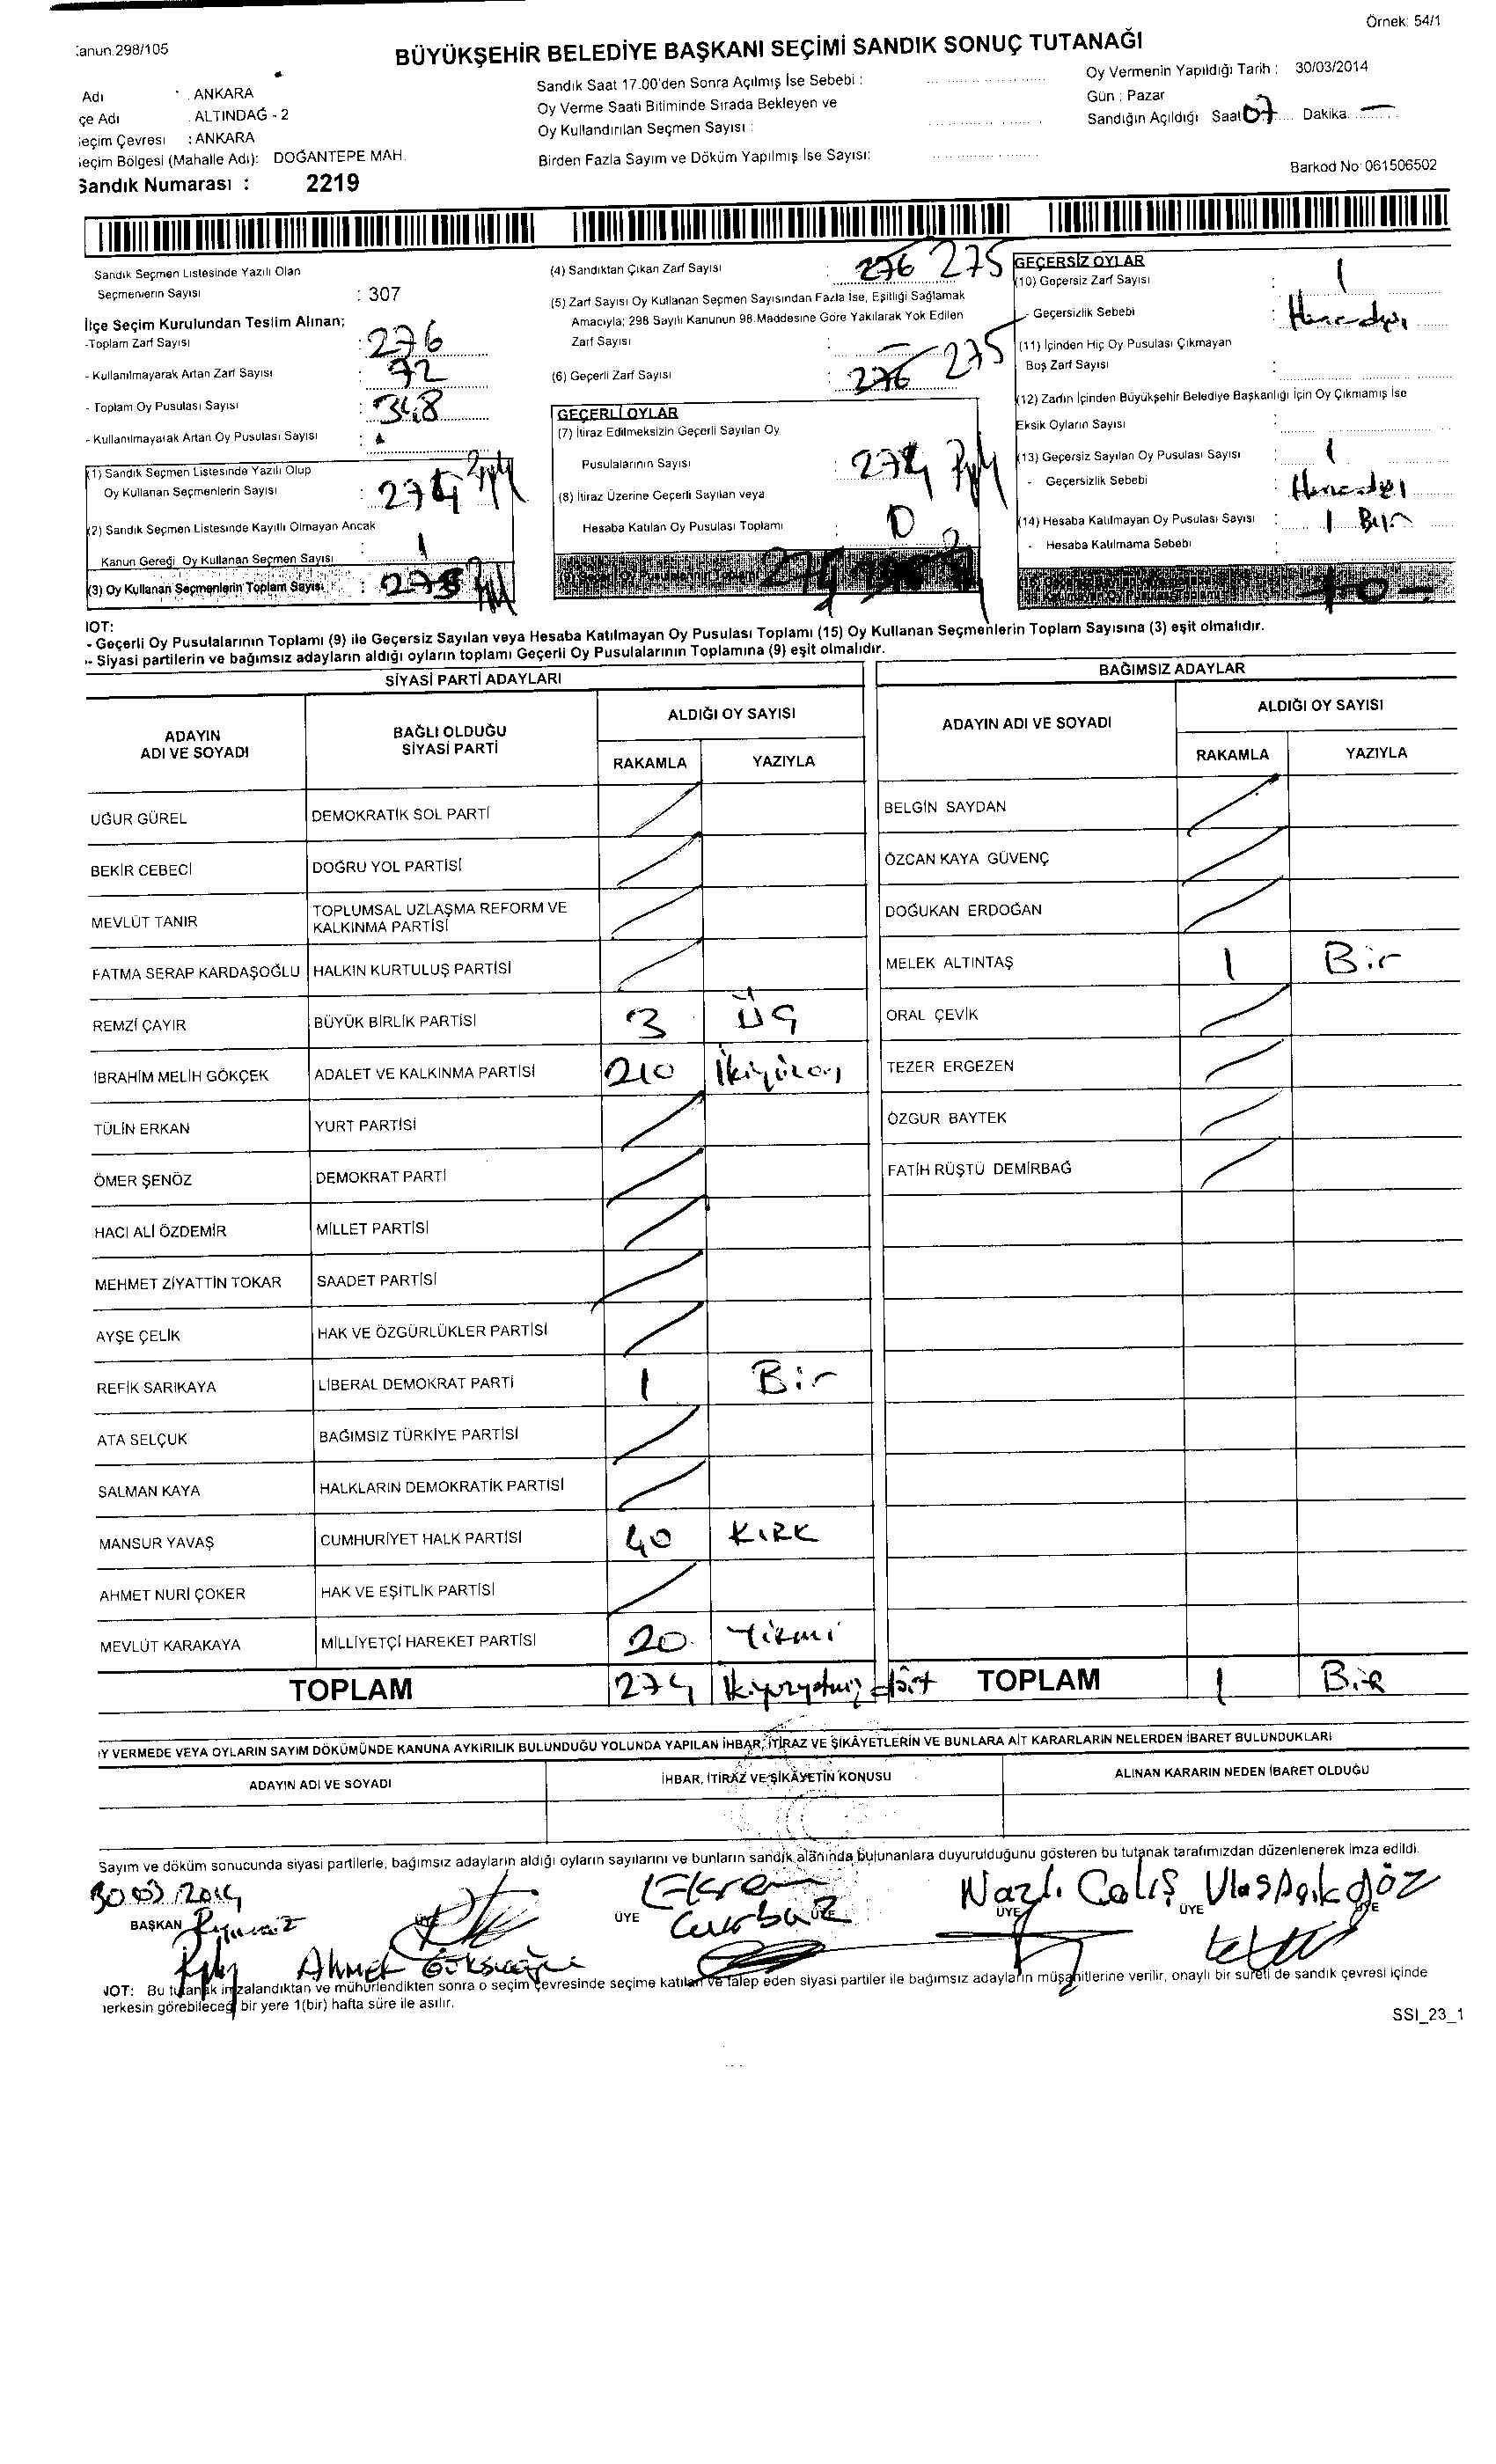 Örnek: 54/1
anun.298/105
BÜYÜKŞEHİR BELEDİYE BAŞKANI SEÇİMİ SANDIK SONUÇ TUTANAĞI
Adı : ANKARA
çe Adı : ALTINDAĞ - 2
eçim Çevresi : ANKARA
eçim Bölgesi (Mahalle Adı): DOĞANTEPE MAH.
Sandık Numarası : 2219
Sandık Saat 17.00'den Sonra Açılmış İse Sebebi :
Oy Verme Saati Bitiminde Sırada Bekleyen ve
Oy Kullandırılan Seçmen Sayısı :
Birden Fazla Sayım ve Döküm Yapılmış İse Sayısı:
Oy Vermenin Yapıldığı Tarih : 30/03/2014
Gün : Pazar
Sandığın Açıldığı Saat 07 Dakika —
Barkod No: 061506502
Sandık Seçmen Listesinde Yazılı Olan
Seçmenlerin Sayısı : 307
İlçe Seçim Kurulundan Teslim Alınan;
-Toplam Zarf Sayısı : 276
- Kullanılmayarak Artan Zarf Sayısı : 72
- Toplam Oy Pusulası Sayısı : 348
- Kullanılmayarak Artan Oy Pusulası Sayısı :
(1) Sandık Seçmen Listesinde Yazılı Olup
Oy Kullanan Seçmenlerin Sayısı : 274
(2) Sandık Seçmen Listesinde Kayıtlı Olmayan Ancak
Kanun Gereği Oy Kullanan Seçmen Sayısı : 1
(3) Oy Kullanan Seçmenlerin Toplam Sayısı : 275
(4) Sandıktan Çıkan Zarf Sayısı : 276 275
(5) Zarf Sayısı Oy Kullanan Seçmen Sayısından Fazla İse, Eşitliği Sağlamak
Amacıyla; 298 Sayılı Kanunun 98.Maddesine Göre Yakılarak Yok Edilen
Zarf Sayısı : —
(6) Geçerli Zarf Sayısı : 276 275
GEÇERLİ OYLAR
(7) İtiraz Edilmeksizin Geçerli Sayılan Oy
Pusulalarının Sayısı : 274
(8) İtiraz Üzerine Geçerli Sayılan veya
Hesaba Katılan Oy Pusulası Toplamı : 0
274
GEÇERSİZ OYLAR
(10) Geçersiz Zarf Sayısı : 1
- Geçersizlik Sebebi :
(11) İçinden Hiç Oy Pusulası Çıkmayan
Boş Zarf Sayısı :
(12) Zarfın İçinden Büyükşehir Belediye Başkanlığı İçin Oy Çıkmamış İse
Eksik Oyların Sayısı :
(13) Geçersiz Sayılan Oy Pusulası Sayısı : 1
- Geçersizlik Sebebi :
(14) Hesaba Katılmayan Oy Pusulası Sayısı : 1 Bir
- Hesaba Katılmama Sebebi :
NOT:
- Geçerli Oy Pusulalarının Toplamı (9) ile Geçersiz Sayılan veya Hesaba Katılmayan Oy Pusulası Toplamı (15) Oy Kullanan Seçmenlerin Toplam Sayısına (3) eşit olmalıdır.
- Siyasi partilerin ve bağımsız adayların aldığı oyların toplamı Geçerli Oy Pusulalarının Toplamına (9) eşit olmalıdır.
SİYASİ PARTİ ADAYLARI
ADAYIN ADI VE SOYADI BAĞLI OLDUĞU SİYASİ PARTİ ALDIĞI OY SAYISI
RAKAMLA YAZIYLA
UĞUR GÜREL DEMOKRATİK SOL PARTİ
BEKİR CEBECİ DOĞRU YOL PARTİSİ
MEVLÜT TANIR TOPLUMSAL UZLAŞMA REFORM VE KALKINMA PARTİSİ
FATMA SERAP KARDAŞOĞLU HALKIN KURTULUŞ PARTİSİ
REMZİ ÇAYIR BÜYÜK BİRLİK PARTİSİ 3 ÜÇ
İBRAHİM MELİH GÖKÇEK ADALET VE KALKINMA PARTİSİ 210 İkiyüzon
TÜLİN ERKAN YURT PARTİSİ
ÖMER ŞENÖZ DEMOKRAT PARTİ
HACI ALİ ÖZDEMİR MİLLET PARTİSİ
MEHMET ZİYATTİN TOKAR SAADET PARTİSİ
AYŞE ÇELİK HAK VE ÖZGÜRLÜKLER PARTİSİ
REFİK SARIKAYA LİBERAL DEMOKRAT PARTİ 1 Bir
ATA SELÇUK BAĞIMSIZ TÜRKİYE PARTİSİ
SALMAN KAYA HALKLARIN DEMOKRATİK PARTİSİ
MANSUR YAVAŞ CUMHURİYET HALK PARTİSİ 40 KIRK
AHMET NURİ ÇOKER HAK VE EŞİTLİK PARTİSİ
MEVLÜT KARAKAYA MİLLİYETÇİ HAREKET PARTİSİ 20 Yirmi
TOPLAM 274 İkiyüzyetmiş dört
BAĞIMSIZ ADAYLAR
ADAYIN ADI VE SOYADI ALDIĞI OY SAYISI
RAKAMLA YAZIYLA
BELGİN SAYDAN
ÖZCAN KAYA GÜVENÇ
DOĞUKAN ERDOĞAN
MELEK ALTINTAŞ 1 Bir
ORAL ÇEVİK
TEZER ERGEZEN
ÖZGUR BAYTEK
FATİH RÜŞTÜ DEMİRBAĞ
TOPLAM 1 BİR
Y VERMEDE VEYA OYLARIN SAYIM DÖKÜMÜNDE KANUNA AYKIRILIK BULUNDUĞU YOLUNDA YAPILAN İHBAR, İTİRAZ VE ŞİKÂYETLERİN VE BUNLARA AİT KARARLARIN NELERDEN İBARET BULUNDUKLARI
ADAYIN ADI VE SOYADI İHBAR, İTİRAZ VE ŞİKÂYETİN KONUSU ALINAN KARARIN NEDEN İBARET OLDUĞU
Sayım ve döküm sonucunda siyasi partilerle, bağımsız adayların aldığı oyların sayılarını ve bunların sandık alanında bulunanlara duyurulduğunu gösteren bu tutanak tarafımızdan düzenlenerek imza edildi.
30.03.2014 Ekrem Nazlı Çalış Ulaş Açıkgöz
BAŞKAN ÜYE Gürbüz ÜYE ÜYE ÜYE
Ahmet
NOT: Bu tutanak imzalandıktan ve mühürlendikten sonra o seçim çevresinde seçime katılan ve talep eden siyasi partiler ile bağımsız adayların müşahitlerine verilir, onaylı bir sureti de sandık çevresi içinde
herkesin görebileceği bir yere 1(bir) hafta süre ile asılır.
SSI_23_1